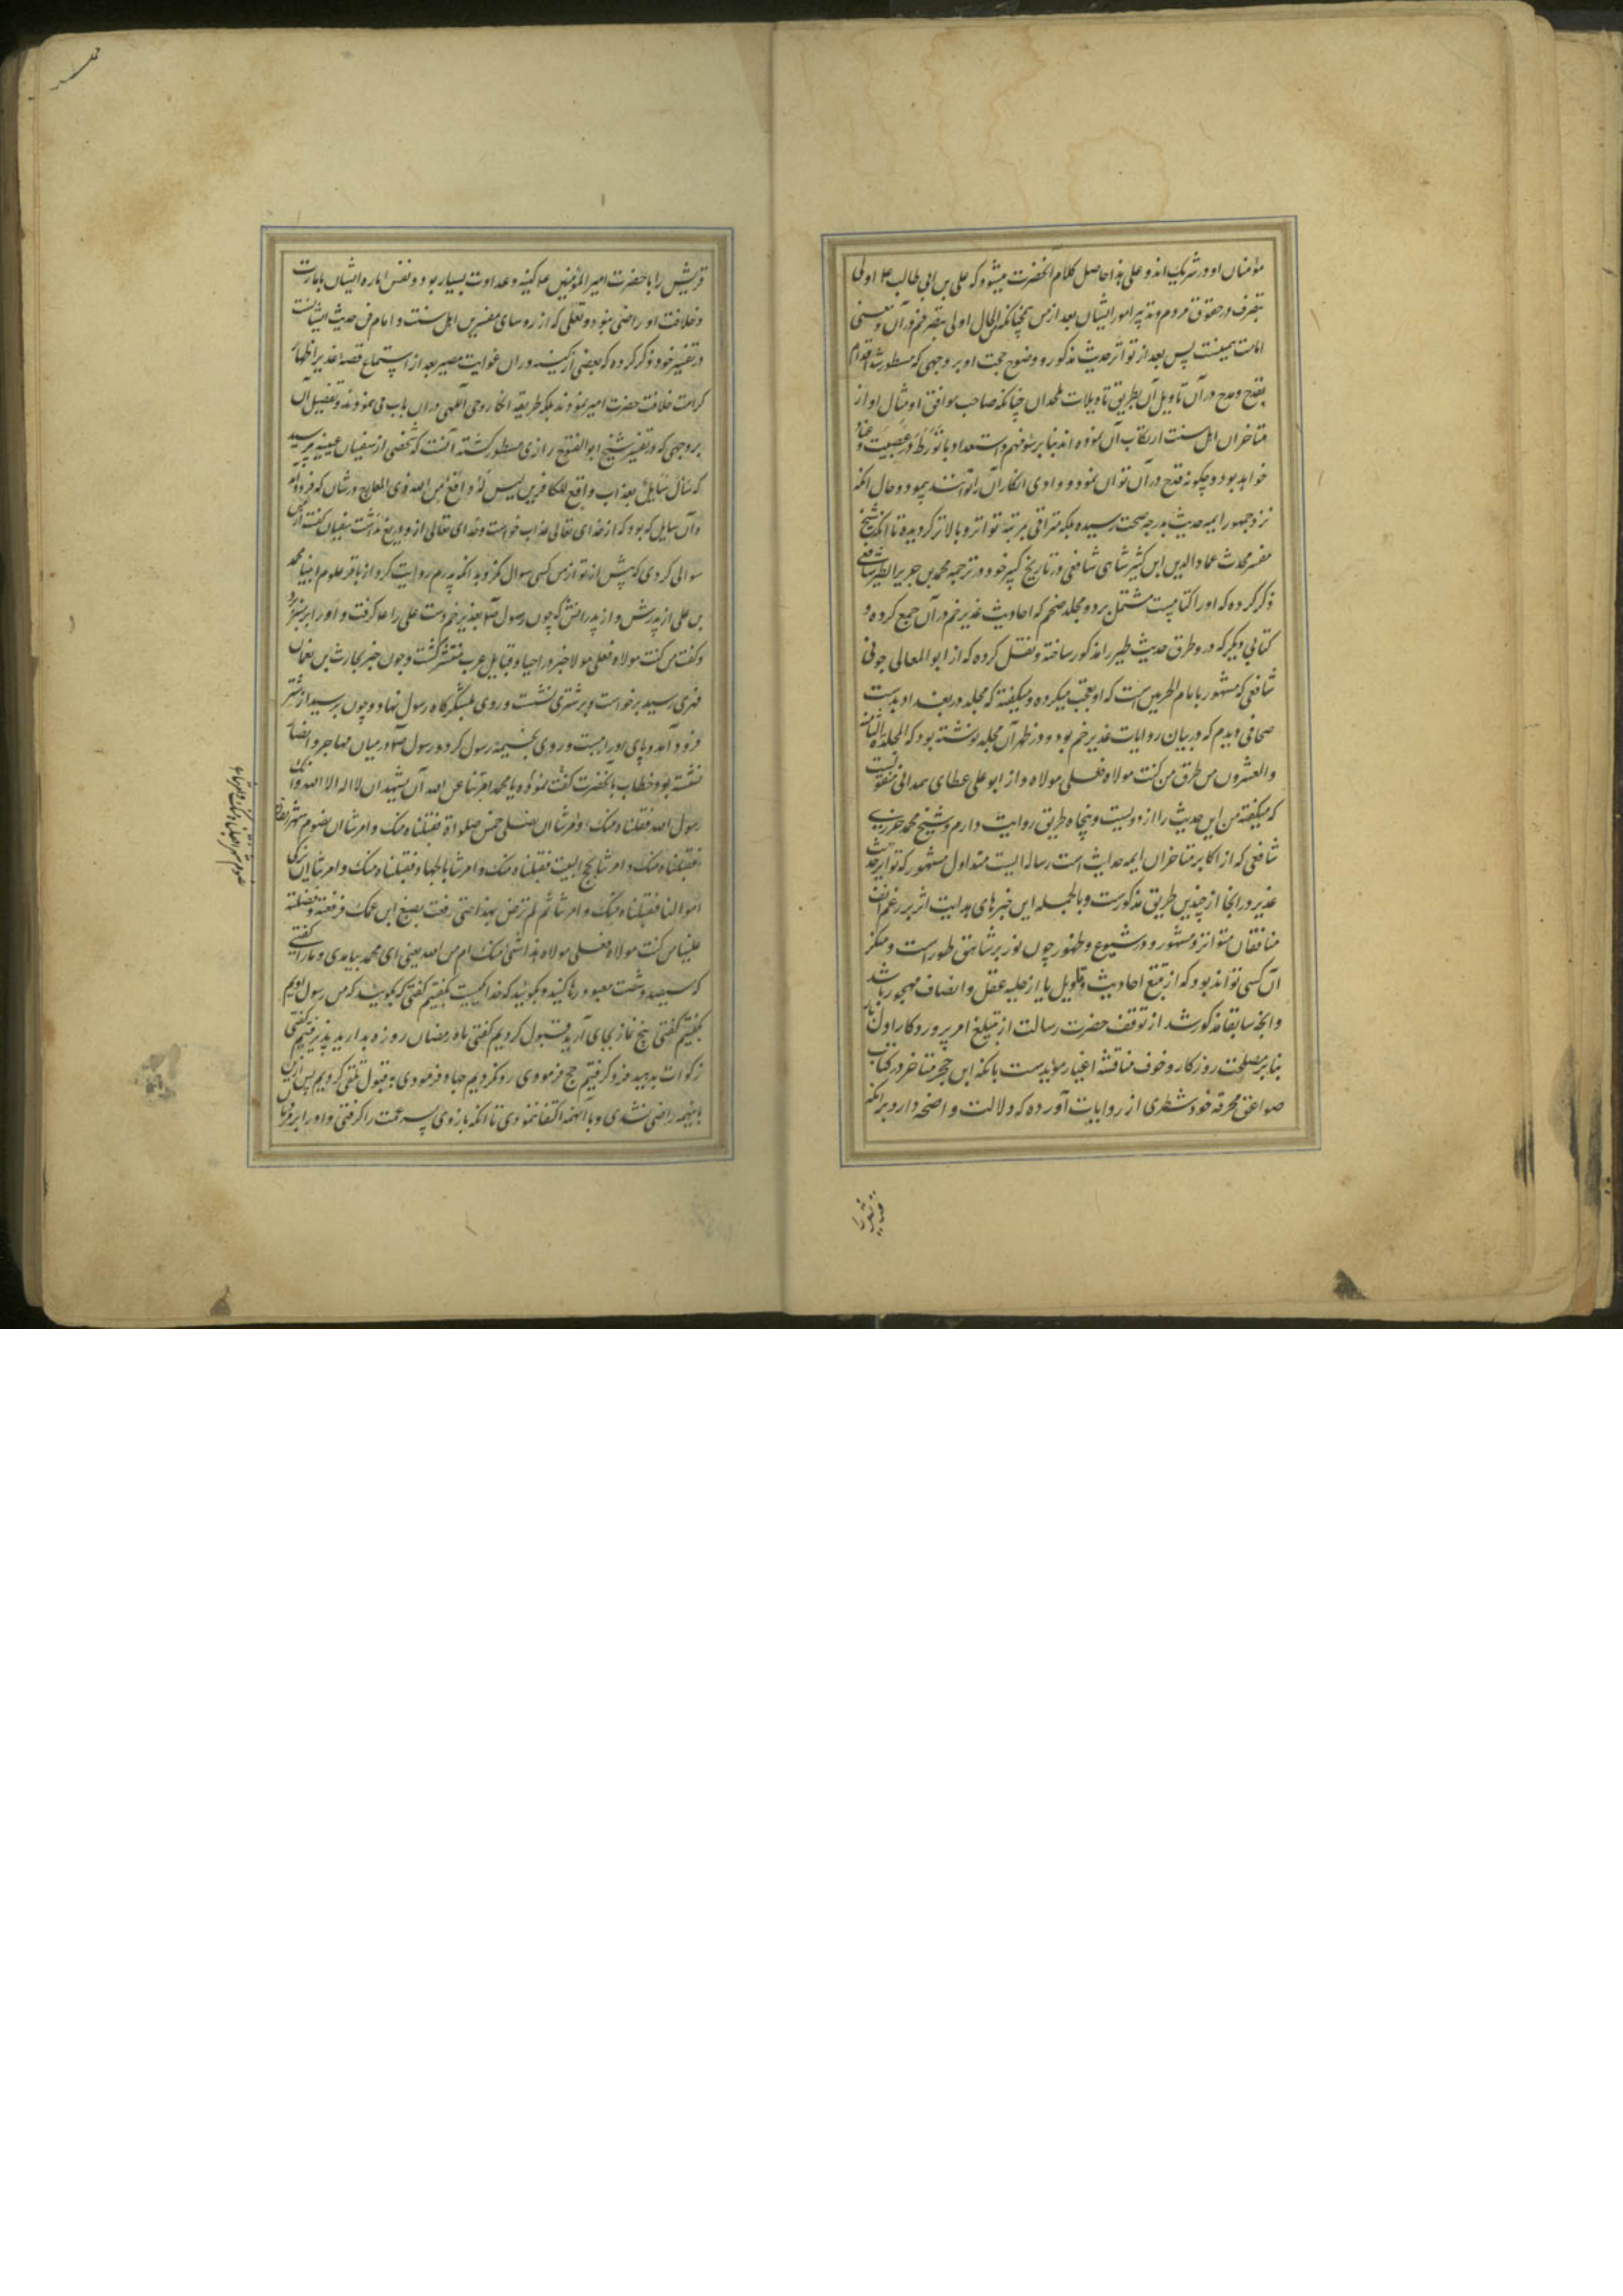 مؤمنان او در شریک‌اند و علی هذا حاصل کلام آنحضرت میشود که علی بن ابی طالب ع اولی
بتصرف در حقوق مردم و تدبیر امور ایشان بعد از من همچنانکه الحال اولی بتصرفم در آن و معنی
امامت همینست پس بعد از تواتر حدیث مذکور و وضوح حجت او بر وجهی که مسطور شد اقدام
بقدح و مدح در آن تاویل آن بطریق تاویلات ملحدان چنانکه صاحب مواقف و امثال او از
متاخران اهل سنت ارتکاب آن نموده اند بنابر سوء فهم و استعداد و یا تورط در عصبیت و عناد
خواهد بود و چگونه قدح در آن توان نمود و وادی انکار آن را توانند پیمود و حال آنکه
نزد جمهور ایمه حدیث بدرجه صحت رسیده بلکه مترقی بمرتبه تواتر و بالاتر گردیده تا آنکه شیخ
مفسر محدث عماد الدین ابن کثیر شامی شافعی در تاریخ کبیر خود در ترجمه محمد بن جریر الطبری شافعی
ذکر کرده که او را کتابیست مشتمل بر دو مجلد ضخم که احادیث غدیر خم در آن جمع کرده و
کتابی دیگر که در و طرق حدیث طیر را مذکور ساخته و نقل کرده که از ابو المعالی جوینی
شافعی که مشهور بامام الحرمین است که او تعجب میکرده و میگفته که مجلد در بغداد بدست
صحافی دیدم که در بیان روایات غدیر خم بود و در ظهر آن مجلد نوشته بود که المجلدة الثامنه
والعشرون من طرق من کنت مولاه فعلی مولاه و از ابو علی عطای همدانی منقولست
که میگفته من این حدیث را از دویست و پنجاه طریق روایت دارم و شیخ محمد جزری
شافعی که از اکابر متاخران ایمه حدیث است رساله ایست متداول مشهور که تواتر حدیث
غدیر در آنجا از چندین طریق مذکورست و بالجمله این خبرهای هدایت اثر بر رغم انف
منافقان متواتر و مشهور و در شیوع و ظهور چون نور بر شاهق طور است و منکر
آن کسی تواند بود که از تتبع احادیث و تاویل یا از حلیه عقل و انصاف مهجور باشد
و آنچه سابقا مذکور شد از توقف حضرت رسالت از تبلیغ امر پروردگار اول بار
بنابر مصلحت روزگار و خوف مناقشه اغیار مؤیدست بانکه ابن حجر متاخر در کتاب
صواعق محرقه خود شطری از روایات آورده که دلالت واضحه دارد بر آنکه
قریش را با حضرت امیر المؤمنین ع کینه و عداوت بسیار بود و نفس اماره ایشان بامارت
و خلافت او راضی نبود و ثعلبی که از روسای مفسرین اهل سنت و امام فن حدیث ایشانست
در تفسیر خود ذکر کرده که بعضی از کینه وران غوایت مصیر بعد از استماع قصه غدیر اظهار
کراهت خلافت حضرت امیر نمودند بلکه طریقه انکار وحی الهی در آن باب می نمودند و تفصیل آن
بر وجهی که در تفسیر شیخ ابو الفتوح رازی مسطور گشته آنست که شخصی از سفیان عیینه پرسید
که سأل سایل بعذاب واقع للکافرین لیس له دافع من الله ذی المعارج در شان که فرود آمد
و آن سایل که بود که از خدای تعالی عذاب خواست و خدای تعالی از و دریغ نداشت سفیان گفت از من
سوالی کردی که پیش از تو از من کسی سوال نکرد بدانکه پدرم روایت کرد از باقر علوم انبیا محمد
بن علی از پدرش و از پدرانش که چون رسول ص بغدیر خم دست علی را ع گرفت و او را بر منبر برد
و گفت من کنت مولاه فعلی مولا خبر در احیا و قبایل عرب منتشر گشت و چون خبر بحارث بن نعمان
فهری رسید برخواست و بر شتری نشست و روی بلشگرگاه رسول نهاد و چون برسید از شتر
فرود آمد و پای او را ببست و روی بخیمه رسول کرد و رسول ص در میان مهاجر و انصار
نشسته بود خطاب بآنحضرت گفت نموده یا محمد امرتنا عن الله ان نشهد ان لا اله الا الله و انک
رسول الله فقبلناه منک و امرتنا ان نصلی خمس صلواة فقبلناه منک و امرتنا ان نصوم شهر رمضان
فقبلناه منک و امرتنا بحج البیت فقبلناه منک و امرتنا بالجهاد فقبلناه منک و امرتنا ان نزکی
اموالنا فقبلناه منک و امرتنا ثم لم ترض بهذا حتی رفعت بضبع ابن عمک فرفعته و فضلته
علینا من کنت مولاه فعلی مولاه هذا شیء منک ام من الله یعنی ای محمد بیامدی و ما را گفتی
که سیصد و شصت معبود رها کنید و بگویید که خدا یکیست بگفتیم گفتی که بگویید که من رسول اویم
بگفتیم گفتی پنج نماز بجای آرید قبول کردیم گفتی ماه رمضان روزه بدارید پذیرفتیم گفتی
زکوات بدهید فرو گرفتیم حج فرمودی رد نکردیم جهاد فرمودی به قبول تلقی کردیم پس ازین
باینهمه راضی نشدی و با آنهمه اکتفا ننمودی تا آنکه بازوی پسر عمت را گرفتی و او را بر سر ما
قریش را